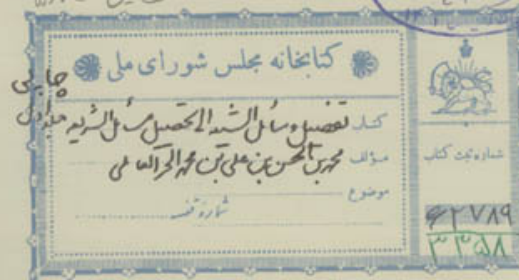 کتابخانه مجلس شورای ملی
چاپی
جلد اول
کتاب تفصیل وسائل الشیعه الی تحصیل مسائل الشریعه
مؤلف محمد بن الحسن بن علی بن محمد الحر العاملی
موضوع
شماره قفسه
شماره ثبت کتاب
۶۲۷۸۹
۳۳۵۸